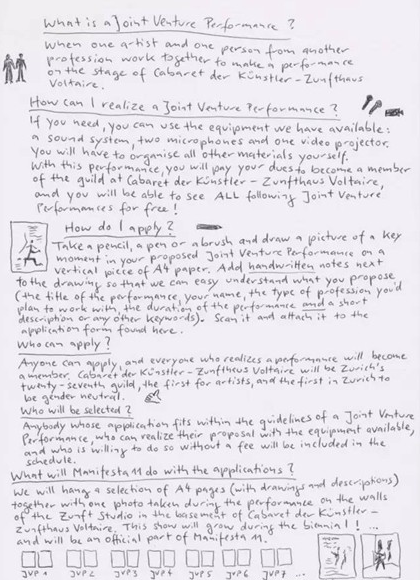 What is a Joint Venture Performance ?
When one artist and one person from another
profession work together to make a performance
on the stage of Cabaret der Künstler – Zunfthaus
Voltaire.
How can I realize a Joint Venture Performance ?
If you need, you can use the equipment we have available :
a sound system, two microphones and one video projector.
You will have to organise all other materials yourself.
With this performance, you will pay your dues to become a member
of the guild at Cabaret der Künstler – Zunfthaus Voltaire,
and you will be able to see ALL following Joint Venture
Performances for free !
How do I apply ?
Take a pencil, a pen or a brush and draw a picture of a key
moment in your proposed Joint Venture Performance on a
vertical piece of A4 paper. Add handwritten notes next
to the drawing so that we can easy understand what you propose
(the title of the performance, your name, the type of profession you'd
plan to work with, the duration of the performance and a short
description or any other keywords). Scan it and attach it to the
application form found here.
Who can apply ?
Anyone can apply, and everyone who realizes a performance will become
a member. Cabaret der Künstler – Zunfthaus Voltaire will be Zurich's
twenty-seventh guild, the first for artists, and the first in Zurich to
be gender neutral.
Who will be selected ?
Anybody whose application fits within the guidelines of a Joint Venture
Performance, who can realize their proposal with the equipment available,
and who is willing to do so without a fee will be included in the
schedule.
What will Manifesta 11 do with the applications ?
We will hang a selection of A4 pages (with drawings and descriptions)
together with one photo taken during the performance on the walls
of the Zunft Studio in the basement of Cabaret der Künstler –
Zunfthaus Voltaire. This show will grow during the biennial ! ...
and will be an official part of Manifesta 11.
JVP 1 JVP 2 JVP 3 JVP 4 JVP 5 JVP 6 JVP 7 ...